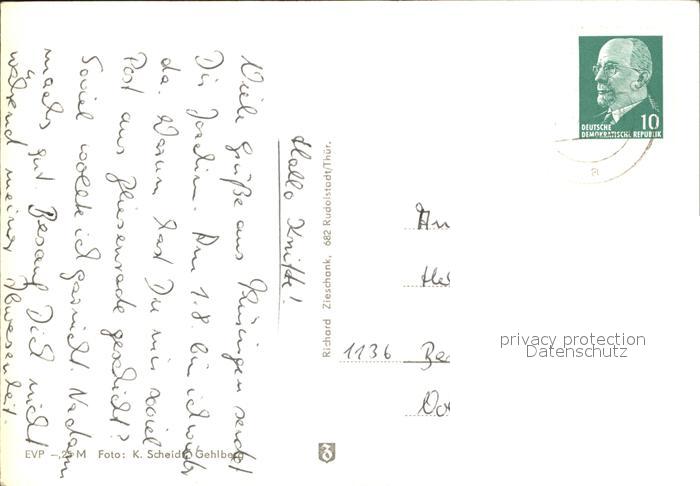 Hallo Knitte!
Viele Grüße aus Thüringen sendet
Dir Joachim. Am 1.8. bin ich wieder
da. Warum hast Du mir soviel
Post aus geschickt?
Soviel wollte ich garnicht. Na dann
machs gut. Besauf Dich nicht
während meiner Abwesenheit.
Richard Zieschank, 682 Rudolstadt/Thür.
EVP -,25 M Foto: K. Scheidt, Gehlberg
10
DEUTSCHE
DEMOKRATISCHE REPUBLIK
An
1136 Be
privacy protection
Datenschutz